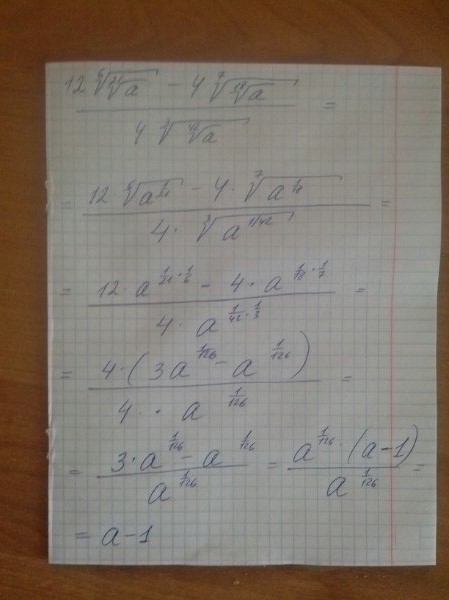 12 ⁶√(²¹√a) − 4 ⁷√(¹⁸√a) / 4 ³√(⁴²√a) =
= 12· ⁶√(a^(1/21)) − 4· ⁷√(a^(1/18)) / 4· ³√(a^(1/42)) =
= 12·a^(1/21·1/6) − 4·a^(1/18·1/7) / 4·a^(1/42·1/3) =
= 4·(3a^(1/126) − a^(1/126)) / 4·a^(1/126) =
= 3·a^(1/126) − a^(1/126) / a^(1/126) = a^(1/126)·(a−1) / a^(1/126) =
= a−1